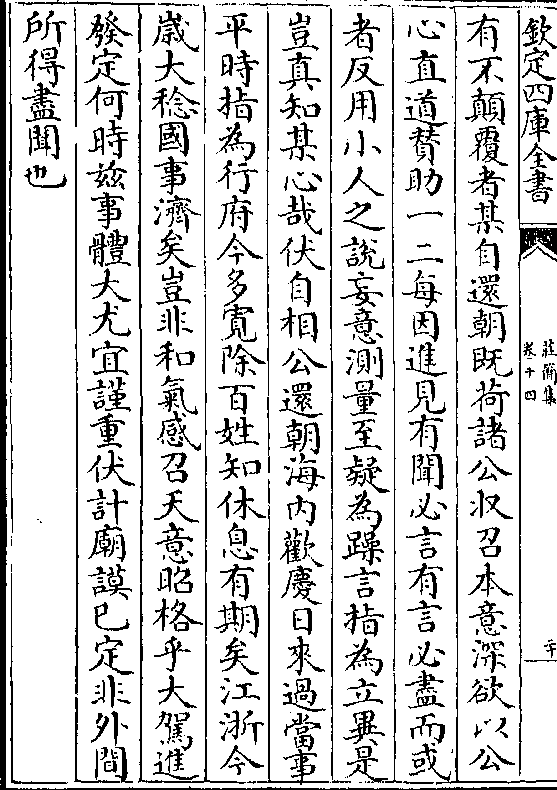 欽定四庫全書
莊簡集
卷十四
二十
有不顛覆者某自還朝既荷諸公收召本意深欲以公
心直道賛助一二每因進見有聞必言有言必盡而或
者反用小人之説妄意測量至疑為躁言指為立異是
豈真知某心哉伏自相公還朝海内歡慶日來過當事
平時指為行府今多寛除百姓知休息有期矣江浙今
嵗大稔國事濟矣豈非和氣感召天意昭格乎大駕進
發定何時兹事體大尤宜謹重伏計廟謨已定非外間
所得盡聞也